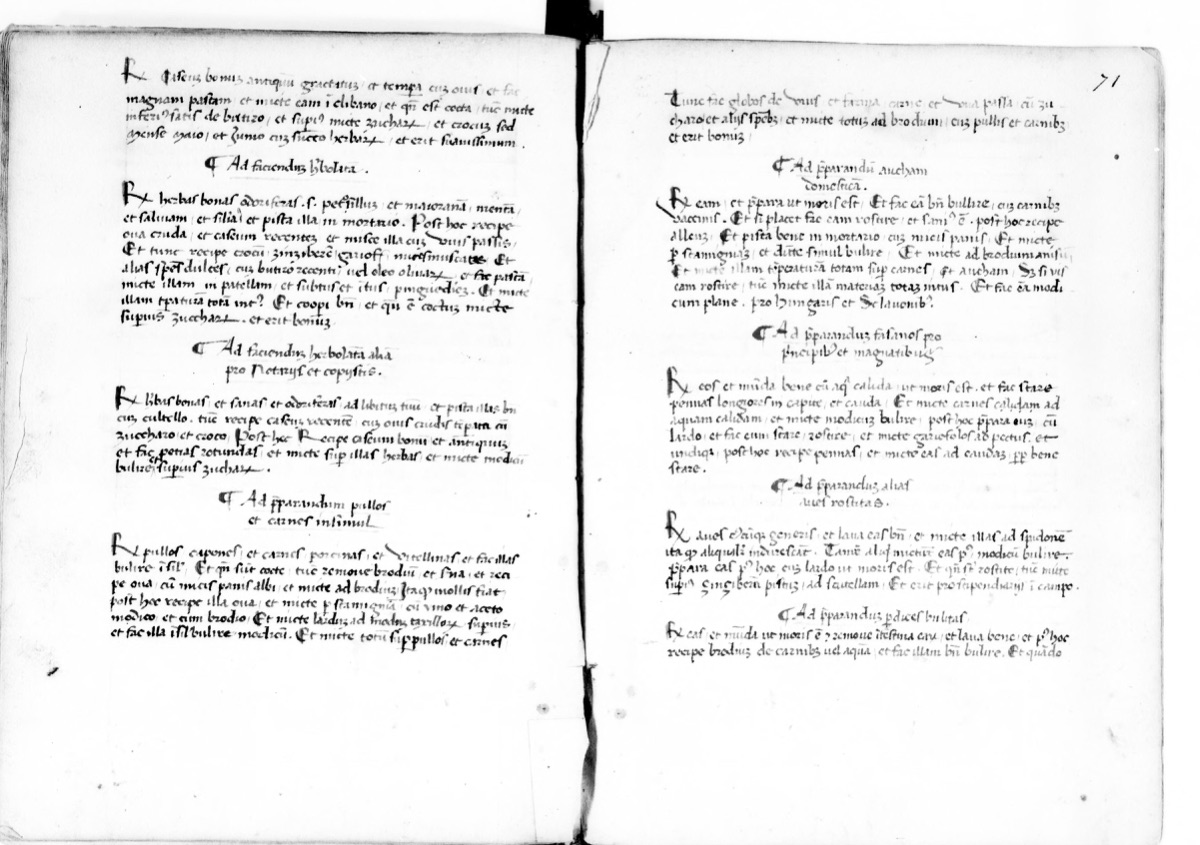 ℞ Caseuʒ bonuʒ antiquū gractatuʒ, et temꝑa cuʒ ouis, et fac
magnam pastam, et micte eam ī clibano, et qn̄ est cocta, tūc micte
interiꝰ satis de butiro, et supiꝰ micte zucharꝝ, et crocuʒ sed
mense maio, et Junio cuʒ succo herbaꝝ, et erit suauissimum.
¶ Ad faciendūʒ h̄bolatā.
℞ herbas bonas odoriferas .s. pet̄sillūʒ et maioranā, mentā,
et saluiam, et silia et pista illa in mortario. Post hoc recipe
oua cruda, et caseum recentez et misce illa cuʒ vuis passis.
Et tunc recipe crocū, zinziberē, gariof̄, nuces muscatas Et
alias sp̄es dulces, cuʒ butiro recenti, uel oleo oliuaꝝ, et fac pastā,
micte illam in patellam, et subtus et ītus, pinguediēʒ. Et micte
illam tꝑaturā totā intꝰ. Et coopi bn̄, et qn̄ ē coctuʒ micte
superius zuccharꝝ. et erit bonūʒ
¶ Ad faciendūʒ herbolatā aliā
pro Notarijs et copijstis.
℞ h̄bas bonas et sanas et odoriferas ad libitūʒ tuū, et pista illas bn̄
cuʒ cultello. tūc recipe caseuʒ recentē, cuʒ ouis crudis tēꝑata cū
zuccharo et croco, Post hec Recipe caseum bonū et antiquūʒ
et fac petias rotundas, et micte suꝑ illas herbas, et micte modicū
bulire et superius zucharꝝ.
¶ Ad p̄parandum pullos
et carnes insimul
℞ pullos capones, et carnes porcinas, et vitellinas et fac illas
bulire īsil̄, Et qn̄ sūt cocte, tūc remoue brodiū, et s̄ua, et reci
pe oua, cū micis panis albi, et micte ad brodiūʒ Itaqʒ mollis fiat
post hoc recipe illa oua, et micte ꝑ stanmignā, cū vino et aceto
modico, et cum brodio, Et micte larduʒ ad moduʒ taxilloꝝ superius
et fac illa īsil̄ bulire modicū. Et micte totū suꝑ pullos et carnes
71
Tunc fac globos de ouis et farina, carne et vua passa cū zu
charo et alijs sp̄ebʒ, et micte totuʒ ad brodium, cuʒ pullis et carnibʒ
et erit bonuʒ.
¶ Ad p̄parandū aucham
domesticā.
℞ eam, et p̄para ut moris est. Et fac eā bn̄ bulire, cuʒ carnibʒ
vaccinis. Et si placet fac eam rostire, et saniꝰ ē. post hoc recipe
alleuʒ, Et pista bene in mortario cuʒ micis panis, Et micte
ꝑ stannignaʒ, et dimicte simul bulire, Et micte ad brodium anisū
Et micte illam tꝑeraturā totam suꝑ carnes, Et aucham, Sʒ si vis
eam rostire, tūc micte illa materiaʒ totaʒ intus. Et fac eā modi
cum plane. pro hungaris et sclauonibꝰ.
¶ Ad p̄parandūʒ fasanos pro
p̄ncipibꝰ et magnatibus
℞ eos et mūda bene cū aqͣ calida, ut moris est. et fac stare
pennas longiores in capite, et cauda, Et micte carnes calidam ad
aquam calidam, et micte modicuʒ bulire, post hoc p̄para euʒ, cū
lardo, et fac eum stare, rostire, et micte gariofolos ad pectus, et
undiqꝫ, post hoc recipe pennas, et micte eas ad caudaʒ, ꝓp̄ bene
stare.
¶ Ad p̄parandūʒ alias
aues rostitas.
℞ aues cuiuscūqꝫ generis, et laua eas bn̄, et micte illas ad spidonē
ita qꝫ aliqualr̄ indurescāt. Tamē aliqͥ mictūt eas pͥ modicū bulire,
p̄para eas pꝰ hoc cuʒ lardo ut moris est. Et qn̄ sūt rostite, tūc micte
superiꝰ Zinziberū pistūʒ, ad scutellam, Et erit pro stipendiarijs ī campo.
¶ Ad p̄parandūʒ ꝑdices bulitas
℞ eas, et mūda ut moris ē et remoue ītestina eaꝝ, et laua bene, et pꝰ hoc
recipe brodiuʒ de carnibʒ uel aqua, et fac illam bn̄ bulire. Et quādo